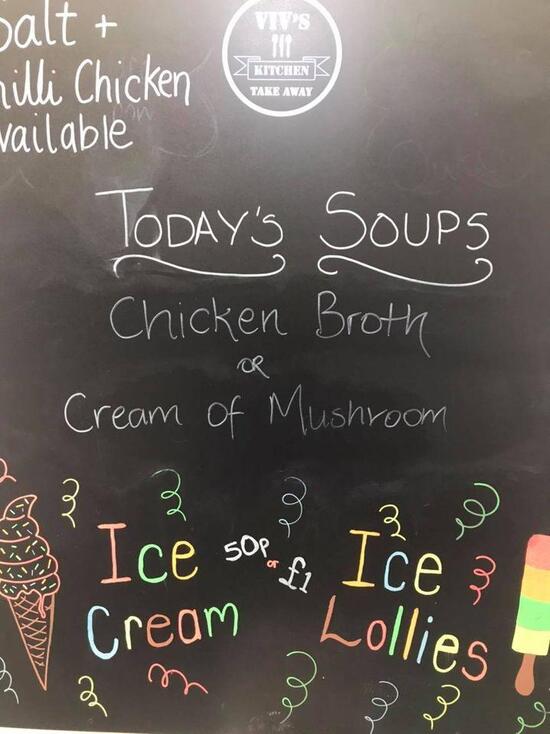 Salt +
hilli Chicken
vailable
VIV'S
KITCHEN
TAKE AWAY
TODAY'S SOUPS
Chicken Broth
OR
Cream of Mushroom
Ice 50p or £1 Ice
Cream Lollies